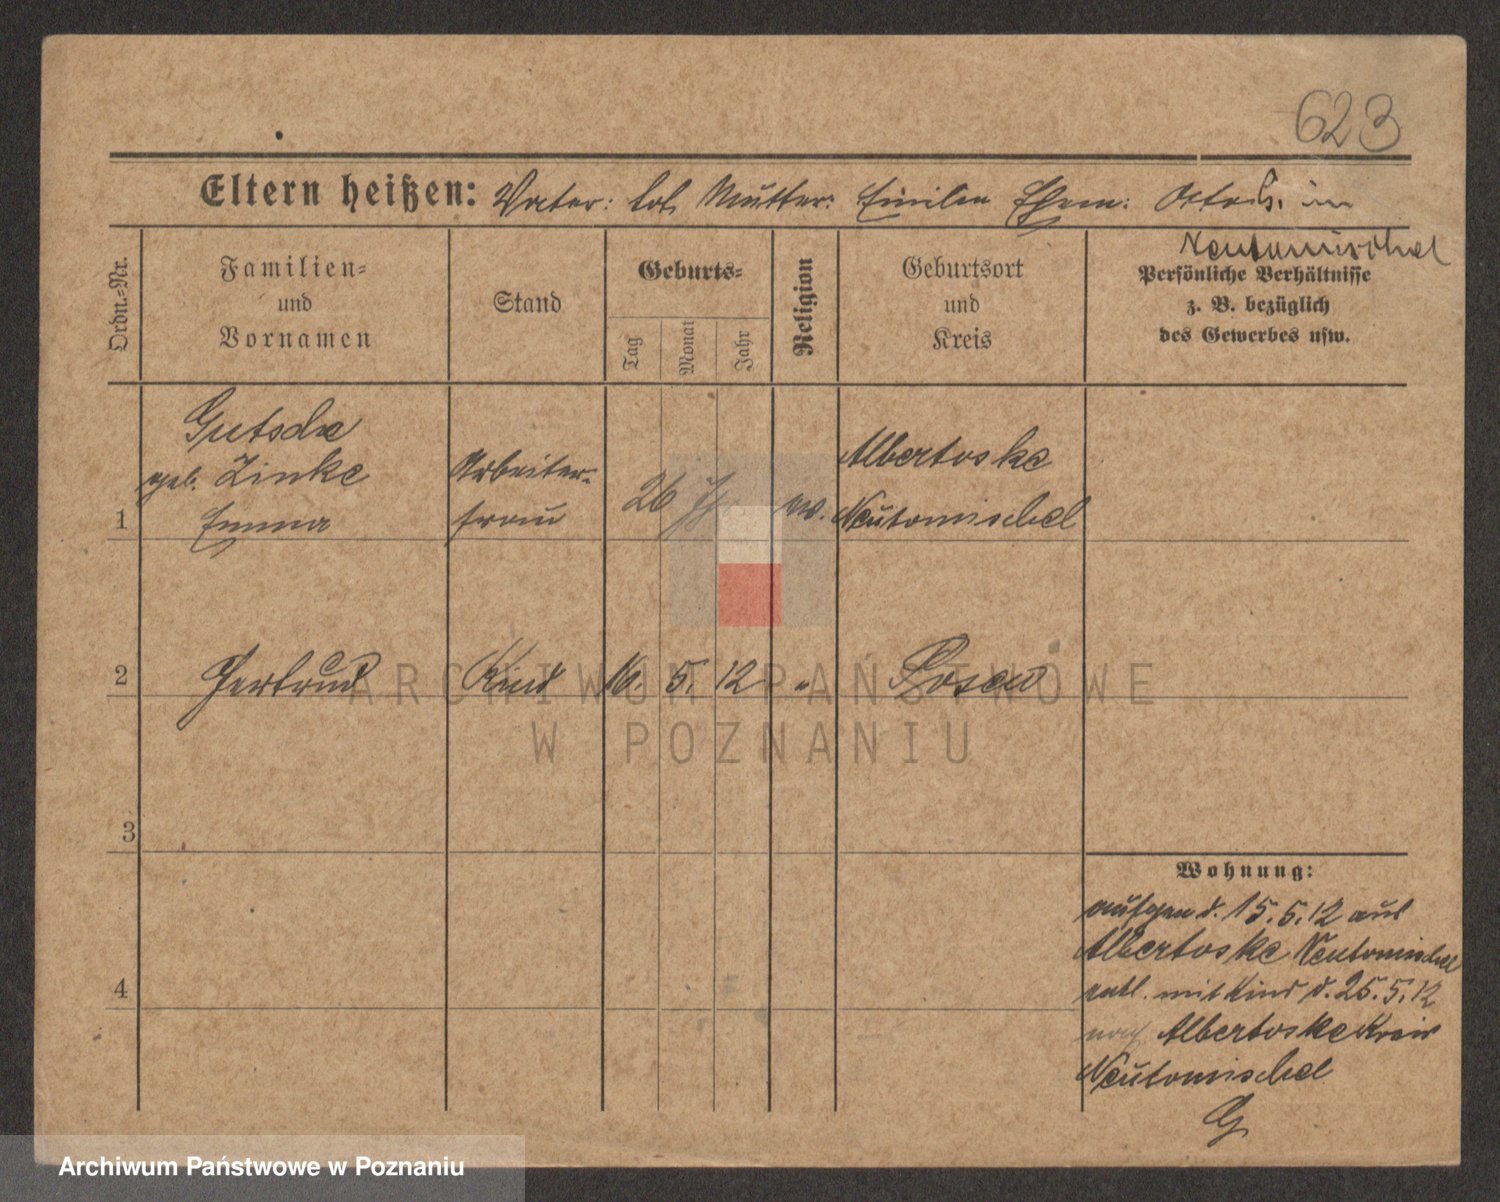 623
Eltern heißen: Vater: tot Mutter: Emilie Ehem: Otto G. in
Neutomischel
Ordn.-Nr.
Familien-
und
Vornamen
Stand
Geburts-
Tag
Monat
Jahr
Religion
Geburtsort
und
Kreis
Persönliche Verhältnisse
z. B. bezüglich
des Gewerbes usw.
1
Gutsche
geb. Zinke
Emma
Arbeiter-
frau
26 J
ev.
Albertoske
Neutomischel
2
Gertrud
Kind
16. 5. 12
"
Posen
3
4
Wohnung:
aufgen d. 15.5.12 aus
Albertoske Neutomischel
entl. mit Kind d. 25.5.12
nach Albertoske Kreis
Neutomischel
G
ARCHIWUM PAŃSTWOWE
W POZNANIU
Archiwum Państwowe w Poznaniu